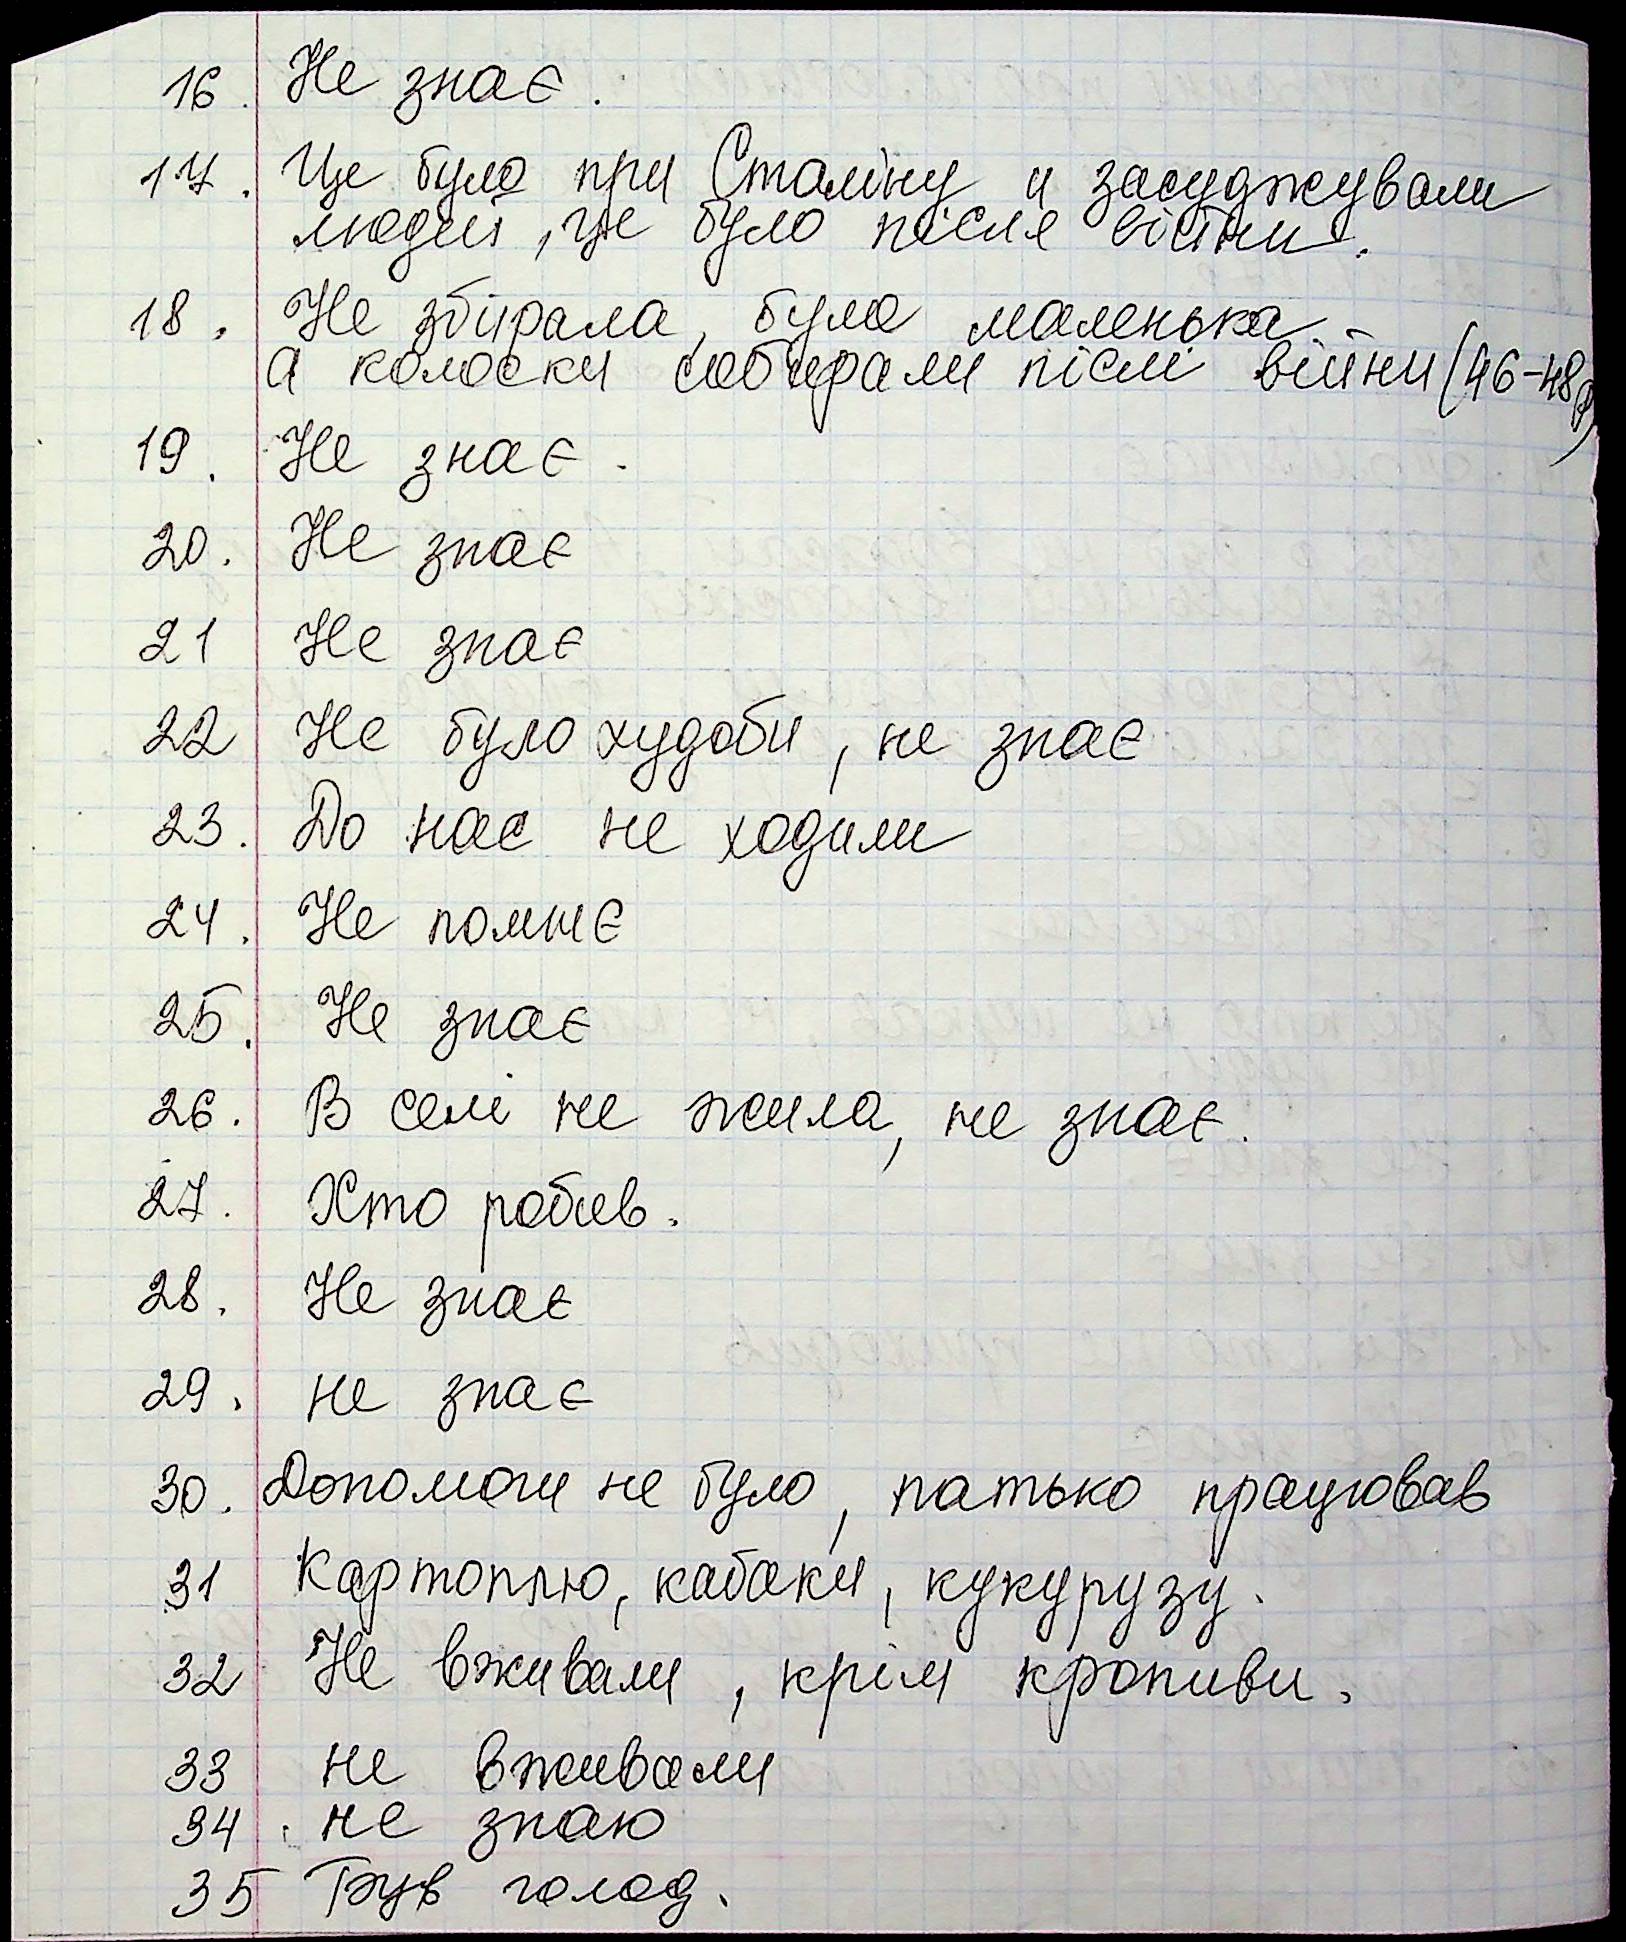 16. Не знає.
17. Це було при Сталіну и засуджували
людей, це було після війни.
18. Не збірала, була маленька
а колоски собирали післі війни (46-48р)
19. Не знає.
20. Не знає
21 Не знає
22 Не було худоби, не знає
23. До нас не ходили
24. Не помнє
25. Не знає
26. В селі не жила, не знає.
27. Хто робив.
28. Не знає
29. не знає
30. Допомоги не було, патько працював
31 Картоплю, кабаки, кукурузу.
32 Не вживали, крім кропиви.
33 не вживали
34. не знаю
35 Був голод.